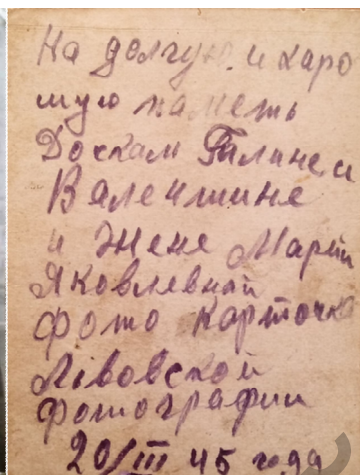 На долгую и харо
шую паметь
Дочкам Галине и
Валентине
и Жене Марии
Яковлевной
фото карточка
Львовской
фотографии
20/III 45 года